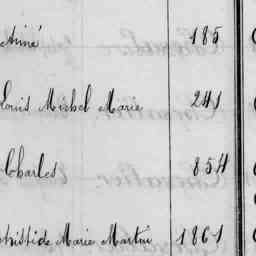 Aimé 185
Louis Michel Marie 241
Charles 854
Aristide Marie Martin 1861